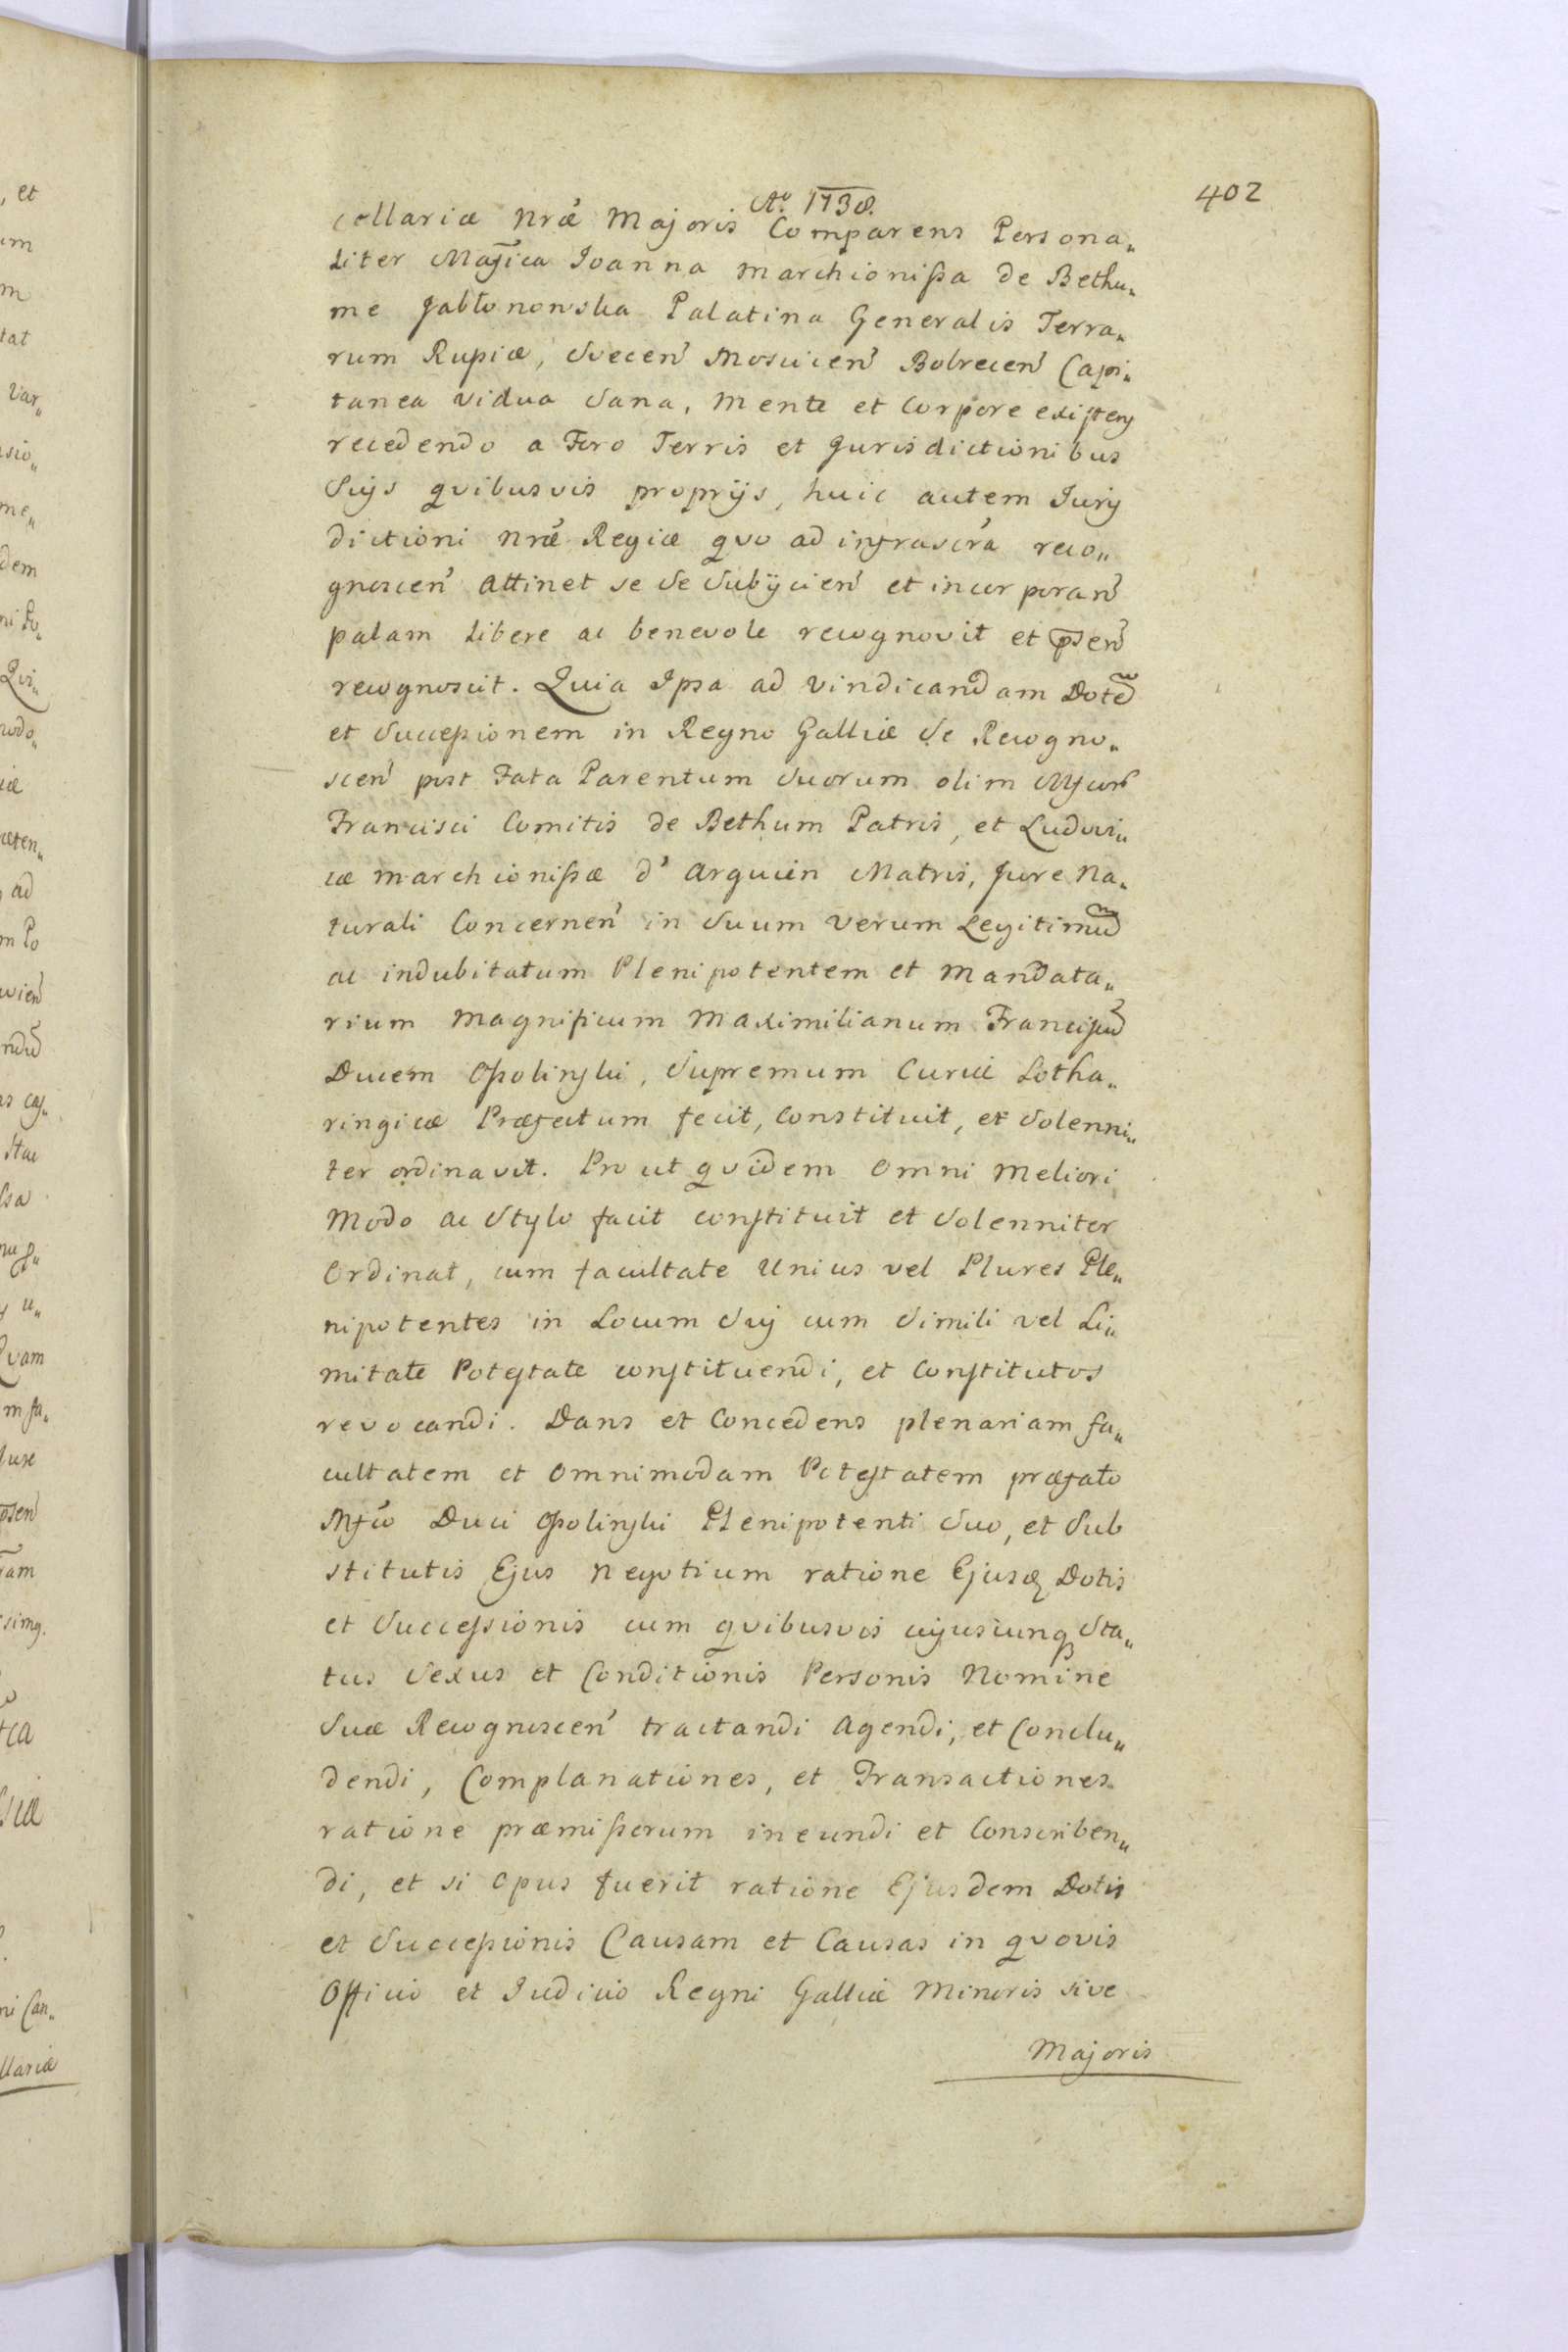 402
Ao. 1738.
cellariæ nræ Majoris Comparens Persona„
liter Magica Joanna Marchionissa de Bethu„
me Jabłonowska Palatina Generalis Terra„
rum Rupiæ, Svecen Moscicen Bobrecen Capi„
tanea vidua Sana, Mente et Corpore existens
recedendo a Foro Terris et Jurisdictionibus
Suijs qvibusvis proprijs, huic autem Juris
dictioni nræ Regiæ quo ad infrascra reco„
gnoscen attinet se se subijcien et incorporan
palam libere ac benevole recognovit et psen
recognoscit. Quia Ipsa ad vindicandam Dotem
et Successionem in Regno Galliæ se Recogno„
scen post Fata Parentum Suorum olim
Francisci Comitis de Bethum Patris, et Ludovi„
cæ Marchionissæ d' Arquien Matris, Jure Na„
turali Concernen in Suum verum Legitimum
ac indubitatum Plenipotentem et Mandata„
rium Magnificum Maximilianum Franciscum
Ducem Ossolinski, Supremum Curiæ Lotha„
ringicæ Præfectum fecit, constituit, et Solenni„
ter ordinavit. Pro ut qvidem omni meliori
modo ac Stylo facit constituit et Solenniter
Ordinat, cum facultate Unius vel Plures Ple„
nipotentes in Locum Suij cum Simili vel Li„
mitate Potestate constituendi, et Constitutos
revocandi. Dans et Concedens plenariam fa„
cultatem et omnimodam Potestatem præfato
Mfco Duci Ossolinski Plenipotenti Suo, et Sub
stitutis Ejus Negotium ratione Ejusd Dotis
et Successionis cum qvibusvis cujuscunq Sta„
tus Sexus et Conditionis Personis Nomine
Suæ Recognoscen tractandi Agendi, et Conclu„
dendi, Complanationes, et Transactiones
ratione præmissorum ineundi et Conscriben„
di, et si opus fuerit ratione Ejusdem Dotis
et Successionis Causam et Causas in qvovis
Officio et Judicio Regni Galliæ Minoris sive
Majoris